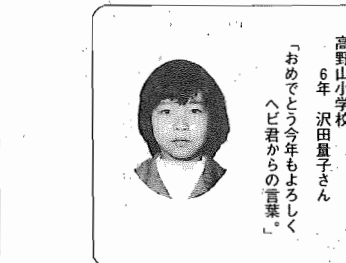 高野山小学校
6年 沢田量子さん
「おめでとう今年もよろしく
ヘビ君からの言葉。」